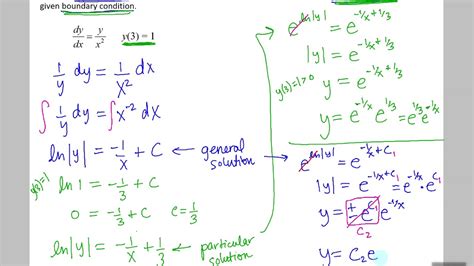 given boundary condition.
dy/dx = y/x² y(3) = 1
1/y dy = 1/x² dx
∫ 1/y dy = ∫ x⁻² dx
ln|y| = -1/x + C ← general solution
y(3)=1
ln 1 = -1/3 + C
0 = -1/3 + C C = 1/3
ln|y| = -1/x + 1/3 ← particular solution
e^(ln|y|) = e^(-1/x + 1/3)
|y| = e^(-1/x + 1/3)
y(3)=1>0
y = e^(-1/x + 1/3)
y = e^(-1/x) e^(1/3) = e^(1/3) e^(-1/x)
e^(ln|y|) = e^(-1/x + C₁)
|y| = e^(-1/x + C₁) = e^(-1/x) · e^(C₁)
y = ± e^(C₁) e^(-1/x)
C₂
y = C₂e